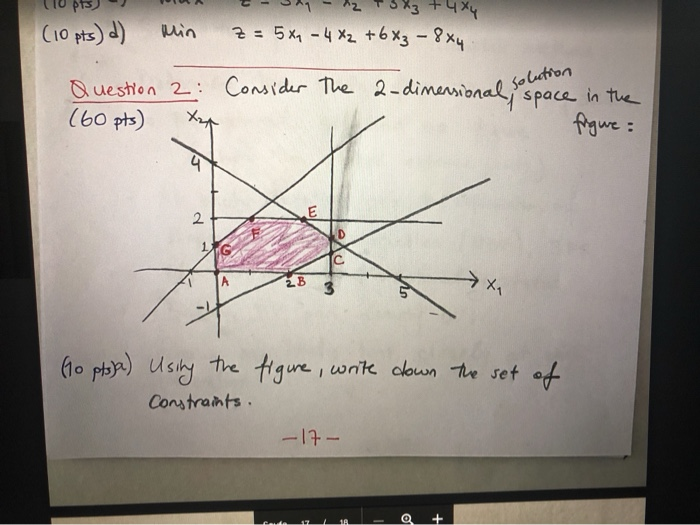 (10 pts)
x2 + 3x3 + 4x4
(10 pts) d) Min z = 5x1 - 4x2 + 6x3 - 8x4
Question 2: Consider The 2-dimensional solution space in the
(60 pts) figure:
x2
4
2 E
F
1 G D
C
-1 A 2 B 3 5 x1
-1
(10 pts) a) Using the figure, write down the set of
Constraints.
-17-
17 / 18 - +